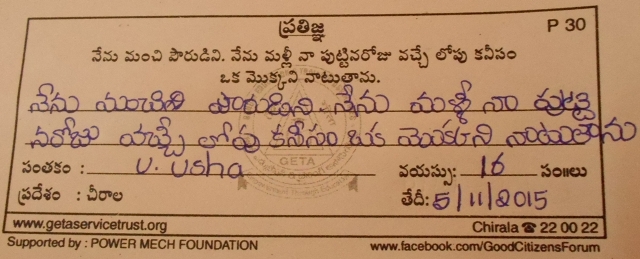 ప్రతిజ్ఞ P 30
నేను మంచి పౌరుడిని. నేను మళ్లీ నా పుట్టినరోజు వచ్చే లోపు కనీసం
ఒక మొక్కని నాటుతాను.
నేను మంచిని పౌరుడిని. నేను మళ్లీ నా పుట్టి
నరోజు వచ్చే లోపు కనీసం ఒక మొక్కని నాటుతాను
సంతకం : V. Usha వయస్సు: 16 సం॥లు
ప్రదేశం : చీరాల తేదీ: 5/11/2015
www.getaservicetrust.org Chirala ☎ 22 00 22
Supported by : POWER MECH FOUNDATION www.facebook.com/GoodCitizensForum
GETA